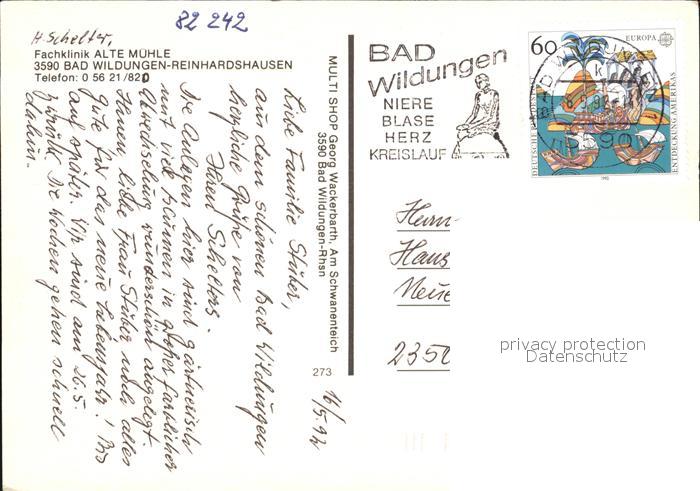 82 242
H. Schelter,
Fachklinik ALTE MÜHLE
3590 BAD WILDUNGEN-REINHARDSHAUSEN
Telefon: 0 56 21/820
16/5.92
Liebe Familie Stüber,
aus dem schönen Bad Wildungen
herzliche Grüße von
Ihren Schelters.
Die Anlagen hier sind gärtnerisch
mit viel Blumen in großer farblicher
Abwechslung wunderschön angelegt.
Ihnen, liebe Frau Stüber noch alles
Gute für das neue Lebensjahr! Bis
auf später. Wir sind am 26.5.
zurück. Die Wochen gehen schnell
dahin.
MULTI SHOP Georg Wackerbarth, Am Schwanenteich
3590 Bad Wildungen-Rhsn
273
BAD
Wildungen
NIERE
BLASE
HERZ
KREISLAUF
60
EUROPA
DEUTSCHE BUNDESPOST
ENTDECKUNG AMERIKAS
1992
BAD WILDUNGEN
k
5.92
3590
Herrn
Haus
2350
privacy protection
Datenschutz